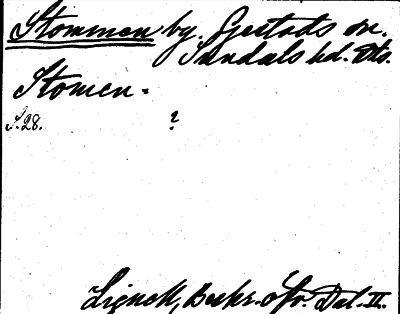 Stommen by. Gestads sn.
Sundals hd. Äbs.
Stomen.
S. 28. ?
Lignell, Beskr. öfv. Dal. II.